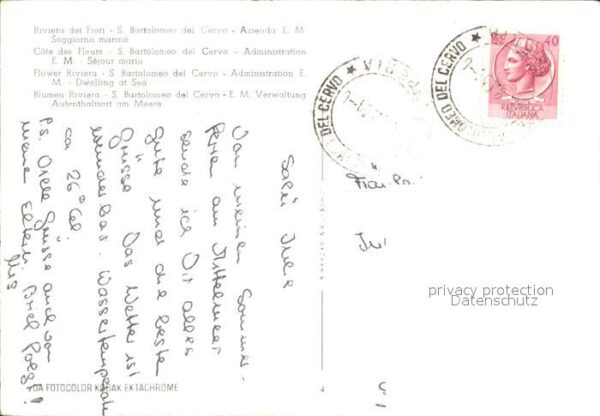 Riviera dei Fiori - S. Bartolomeo del Cervo - Azienda E. M.
Soggiorno marino
Côte des Fleurs - S. Bartolomeo del Cervo - Administration
E. M. - Séjour marin
Flower Riviera - S. Bartolomeo del Cervo - Administration E.
M. - Dwelling at Sea
Blumen Riviera - S. Bartolomeo del Cervo - E. M. Verwaltung
Autenthaltsort am Meere
40
REPVBBLICA
ITALIANA
DEL CERVO
BARTOLOMEO DEL CERVO
Salü Julia
Von meinen Sommer-
ferien am Mittelmeer
sende ich Dir alles
gute und die besten
Grüsse. Das Wetter ist
wunderbar. Wassertemperatur
ca 26° Cel.
P.S. Viele Grüsse auch von
meine Eltern. Brief folgt!
privacy protection
Datenschutz
FOTOCOLOR KODAK EKTACHROME